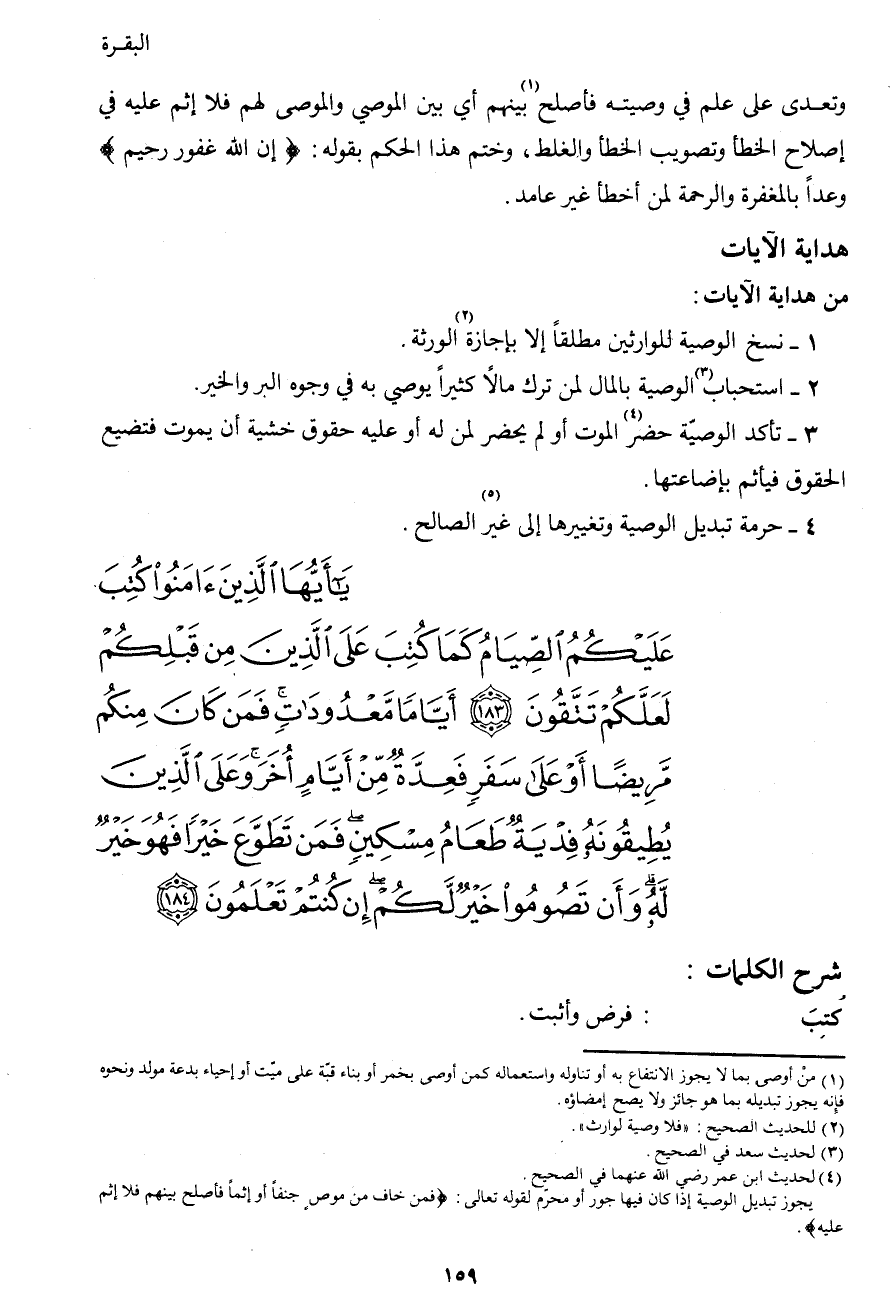 البقـرة
وتعـدى على علم في وصيتـه فأصلح(١) بينهم أي بين الموصي والموصى لهم فلا إثم عليه في
إصلاح الخطأ وتصويب الخطأ والغلط، وختم هذا الحكم بقوله: ﴿ إن الله غفور رحيم ﴾
وعداً بالمغفرة والرحمة لمن أخطأ غير عامد.
هداية الآيات
من هداية الآيات:
١ ـ نسخ الوصية للوارثين مطلقاً إلا بإجازة(٢) الورثة.
٢ ـ استحباب(٣) الوصية بالمال لمن ترك مالًا كثيراً يوصي به في وجوه البر والخير.
٣ ـ تأكد الوصيّة حضر(٤) الموت أو لم يحضر لمن له أو عليه حقوق خشية أن يموت فتضيع
الحقوق فيأثم بإضاعتها.
٤ ـ حرمة تبديل الوصية(٥) وتغييرها إلى غير الصالح.
يَٰٓأَيُّهَا ٱلَّذِينَ ءَامَنُوا۟ كُتِبَ
عَلَيْكُمُ ٱلصِّيَامُ كَمَا كُتِبَ عَلَى ٱلَّذِينَ مِن قَبْلِكُمْ
لَعَلَّكُمْ تَتَّقُونَ ١٨٣ أَيَّامًا مَّعْدُودَٰتٍۚ فَمَن كَانَ مِنكُم
مَّرِيضًا أَوْ عَلَىٰ سَفَرٍ فَعِدَّةٌ مِّنْ أَيَّامٍ أُخَرَۚ وَعَلَى ٱلَّذِينَ
يُطِيقُونَهُۥ فِدْيَةٌ طَعَامُ مِسْكِينٍۖ فَمَن تَطَوَّعَ خَيْرًا فَهُوَ خَيْرٌ
لَّهُۥۚ وَأَن تَصُومُوا۟ خَيْرٌ لَّكُمْۖ إِن كُنتُمْ تَعْلَمُونَ ١٨٤
شرح الكلمات :
كُتِبَ : فرض وأثبت.
(١) منْ أوصى بما لا يجوز الانتفاع به أو تناوله واستعماله كمن أوصى بخمر أو بناء قبّة على ميّت أو إحياء بدعة مولد ونحوه
فإنه يجوز تبديله بما هو جائز ولا يصح إمضاؤه.
(٢) للحديث الصحيح: «فلا وصية لوارث».
(٣) لحديث سعد في الصحيح.
(٤) لحديث ابن عمر رضي الله عنهما في الصحيح.
يجوز تبديل الوصية إذا كان فيها جور أو محرّم لقوله تعالى: ﴿فمن خاف من موص جنفاً أو إثماً فأصلح بينهم فلا إثم
عليه﴾.
١٥٩